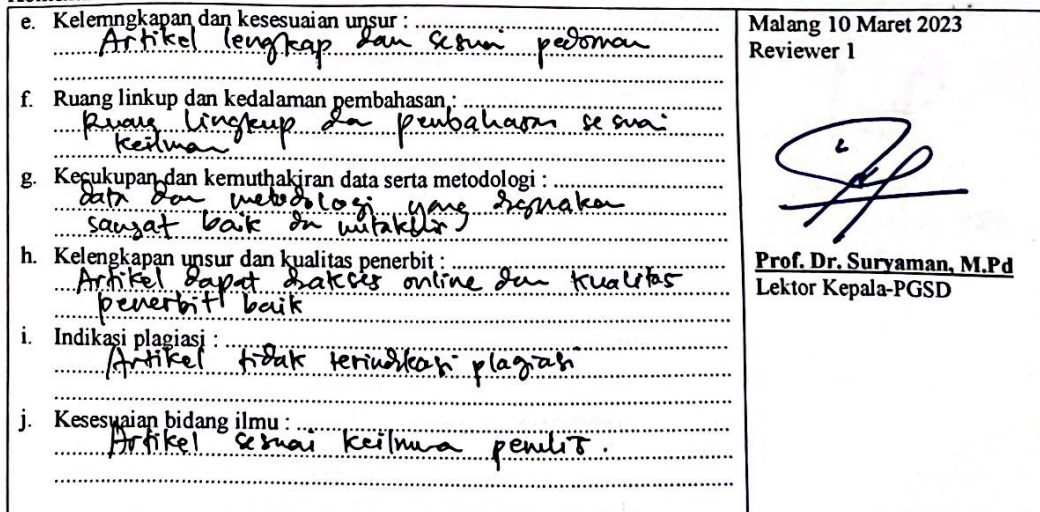 e. Kelemngkapan dan kesesuaian unsur :
Artikel lengkap dan sesuai pedoman
f. Ruang linkup dan kedalaman pembahasan :
Ruang lingkup dan pembahasan sesuai
keilmuan
g. Kecukupan dan kemuthakiran data serta metodologi :
data dan metodologi yang digunakan
sangat baik dan mutakhir
h. Kelengkapan unsur dan kualitas penerbit :
Artikel dapat diakses online dan kualitas
penerbit baik
i. Indikasi plagiasi :
Artikel tidak terindikasi plagiasi
j. Kesesuaian bidang ilmu :
Artikel sesuai keilmua penulis.
Malang 10 Maret 2023
Reviewer 1
Prof. Dr. Suryaman, M.Pd
Lektor Kepala-PGSD